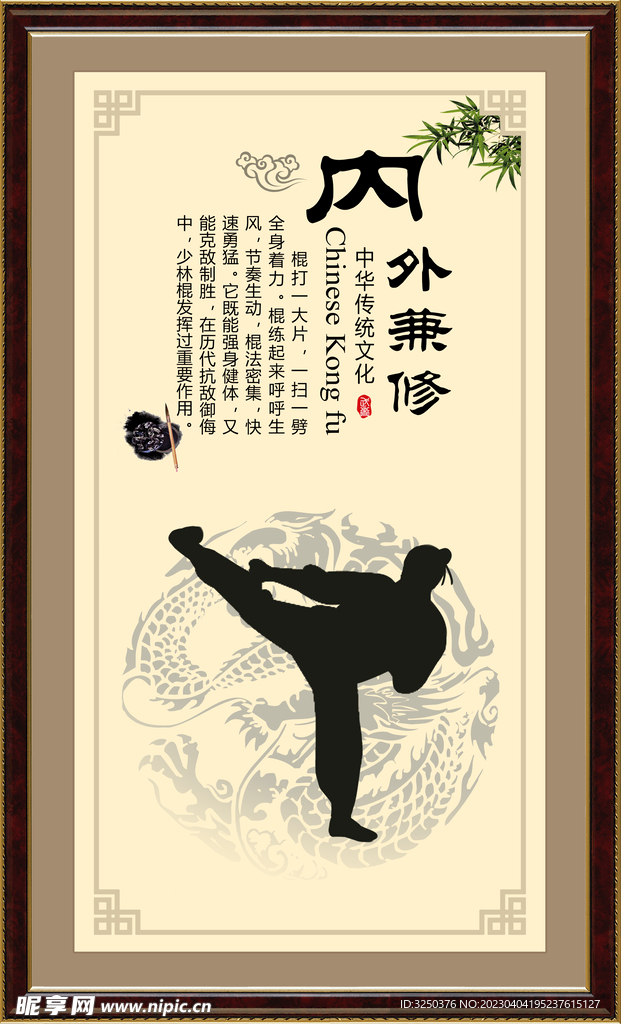 内外兼修
中华传统文化
Chinese Kong fu
棍打一大片，一扫一劈
全身着力。棍练起来呼呼生
风，节奏生动，棍法密集，快
速勇猛。它既能强身健体，又
能克敌制胜，在历代抗敌御侮
中，少林棍发挥过重要作用。
昵享网 www.nipic.cn
ID:3250376 NO:20230404195237615127